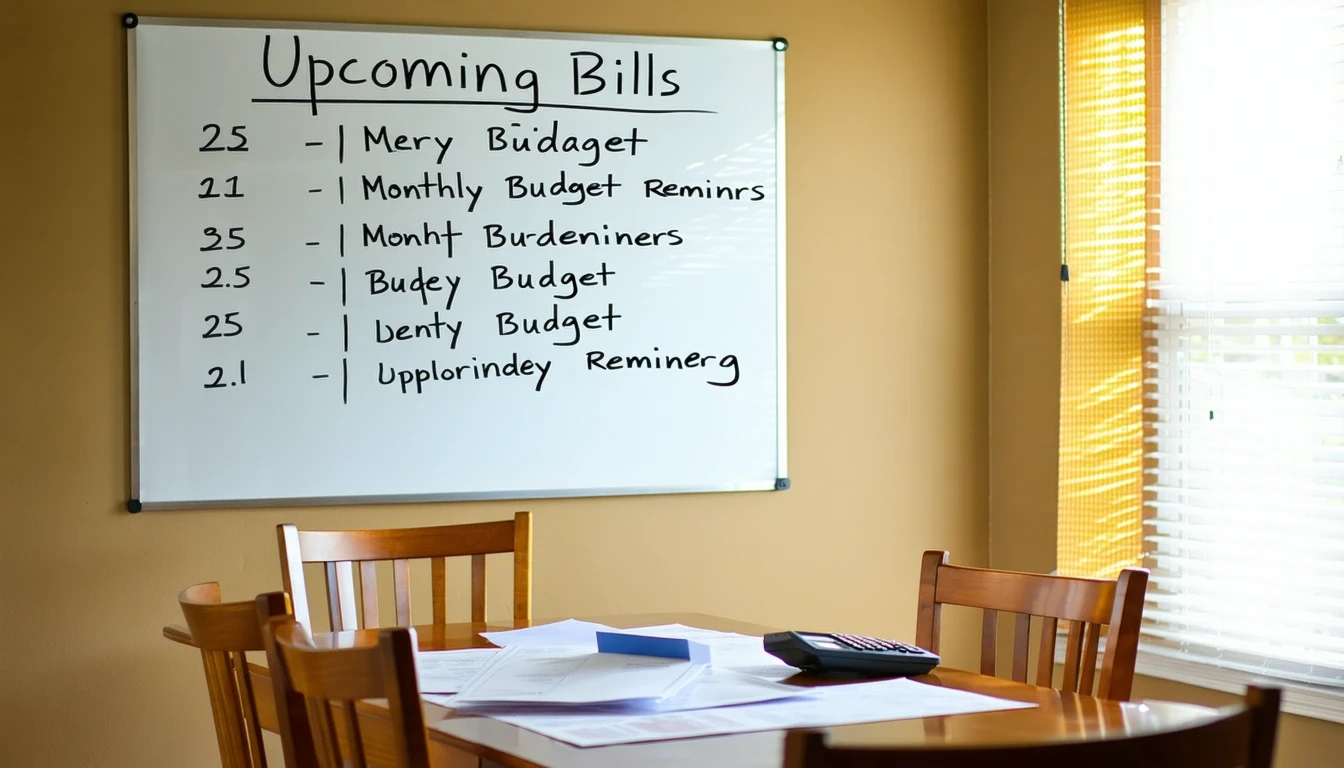 Upcoming Bills
25 - | Mery Büdaget
21 - | Monthly Budget Reminrs
35 - | Monht Burdeniners
2.5 - | Budey Budget
25 - | Lenty Budget
2.1 - | Upplorindey Reminerg